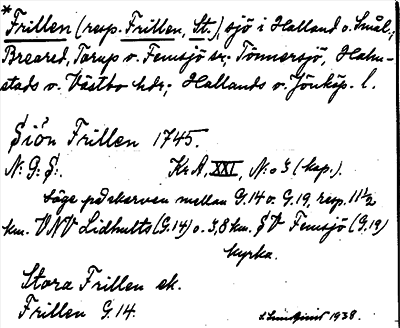 *Frillen (resp. Frillen, St.), sjö i Halland o. Smål.;
Breared, Torup o. Femsjö sn; Tönnersjö, Halm-
stads o. Västbo hdr; Hallands o. Jönköp. l.
Siön Frillen 1745.
N: G: S:. K:A, XXI, N:o 3 (kop.).
Läge på skorven mellan G.14 o. G.19, resp. 11½
km. VNV Lidhults (G.14) o. 3,8 km. SV Femsjö (G.19)
kyrka.
Stora Frillen ek.
Frillen G.14.
1938.